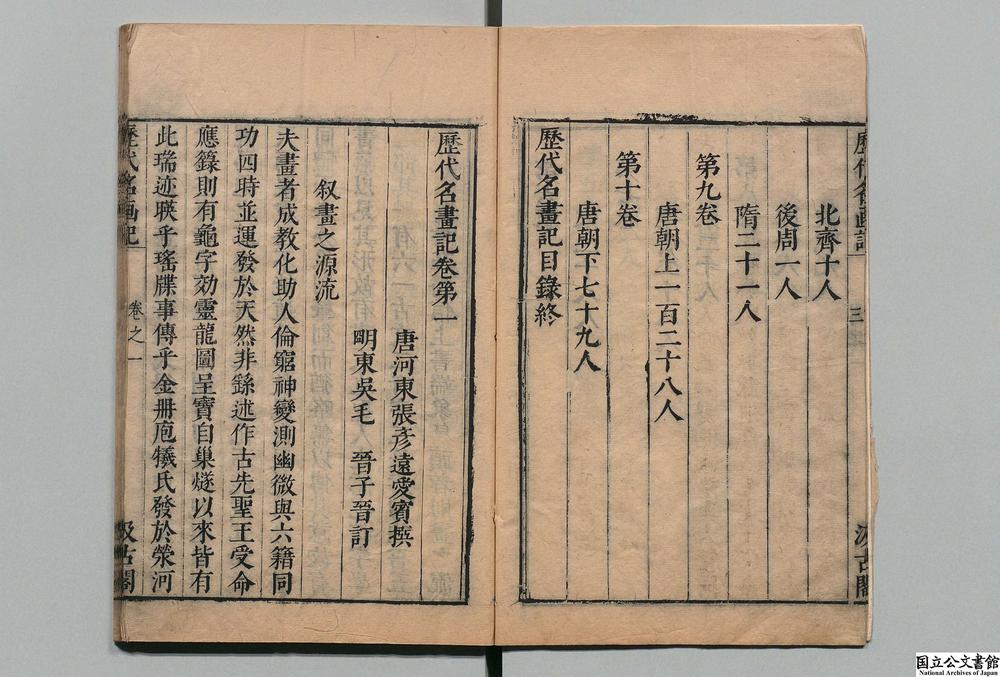 歷代名画記
三
汲古閣
北齊十人
後周一人
隋二十一人
第九卷
唐朝上一百二十八人
第十卷
唐朝下七十九人
歷代名畫記目錄終
歷代名畫記卷第一
唐河東張彥遠愛賓撰
明東吳毛 晉子晉訂
叙畫之源流
夫畫者成教化助人倫窮神變測幽微與六籍同
功四時並運發於天然非繇述作古先聖王受命
應籙則有龜字効靈龍圖呈寶自巢燧以來皆有
此瑞迹暎乎瑤牒事傳乎金册庖犧氏發於滎河
歷代名画記
卷之一
汲古閣
国立公文書館
National Archives of Japan